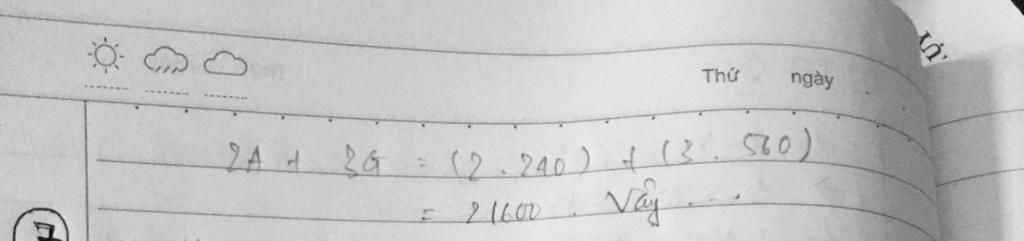 Thứ ngày
2A + 3G = (2 . 240) + (3 . 560)
= 21600 . Vậy ....
7